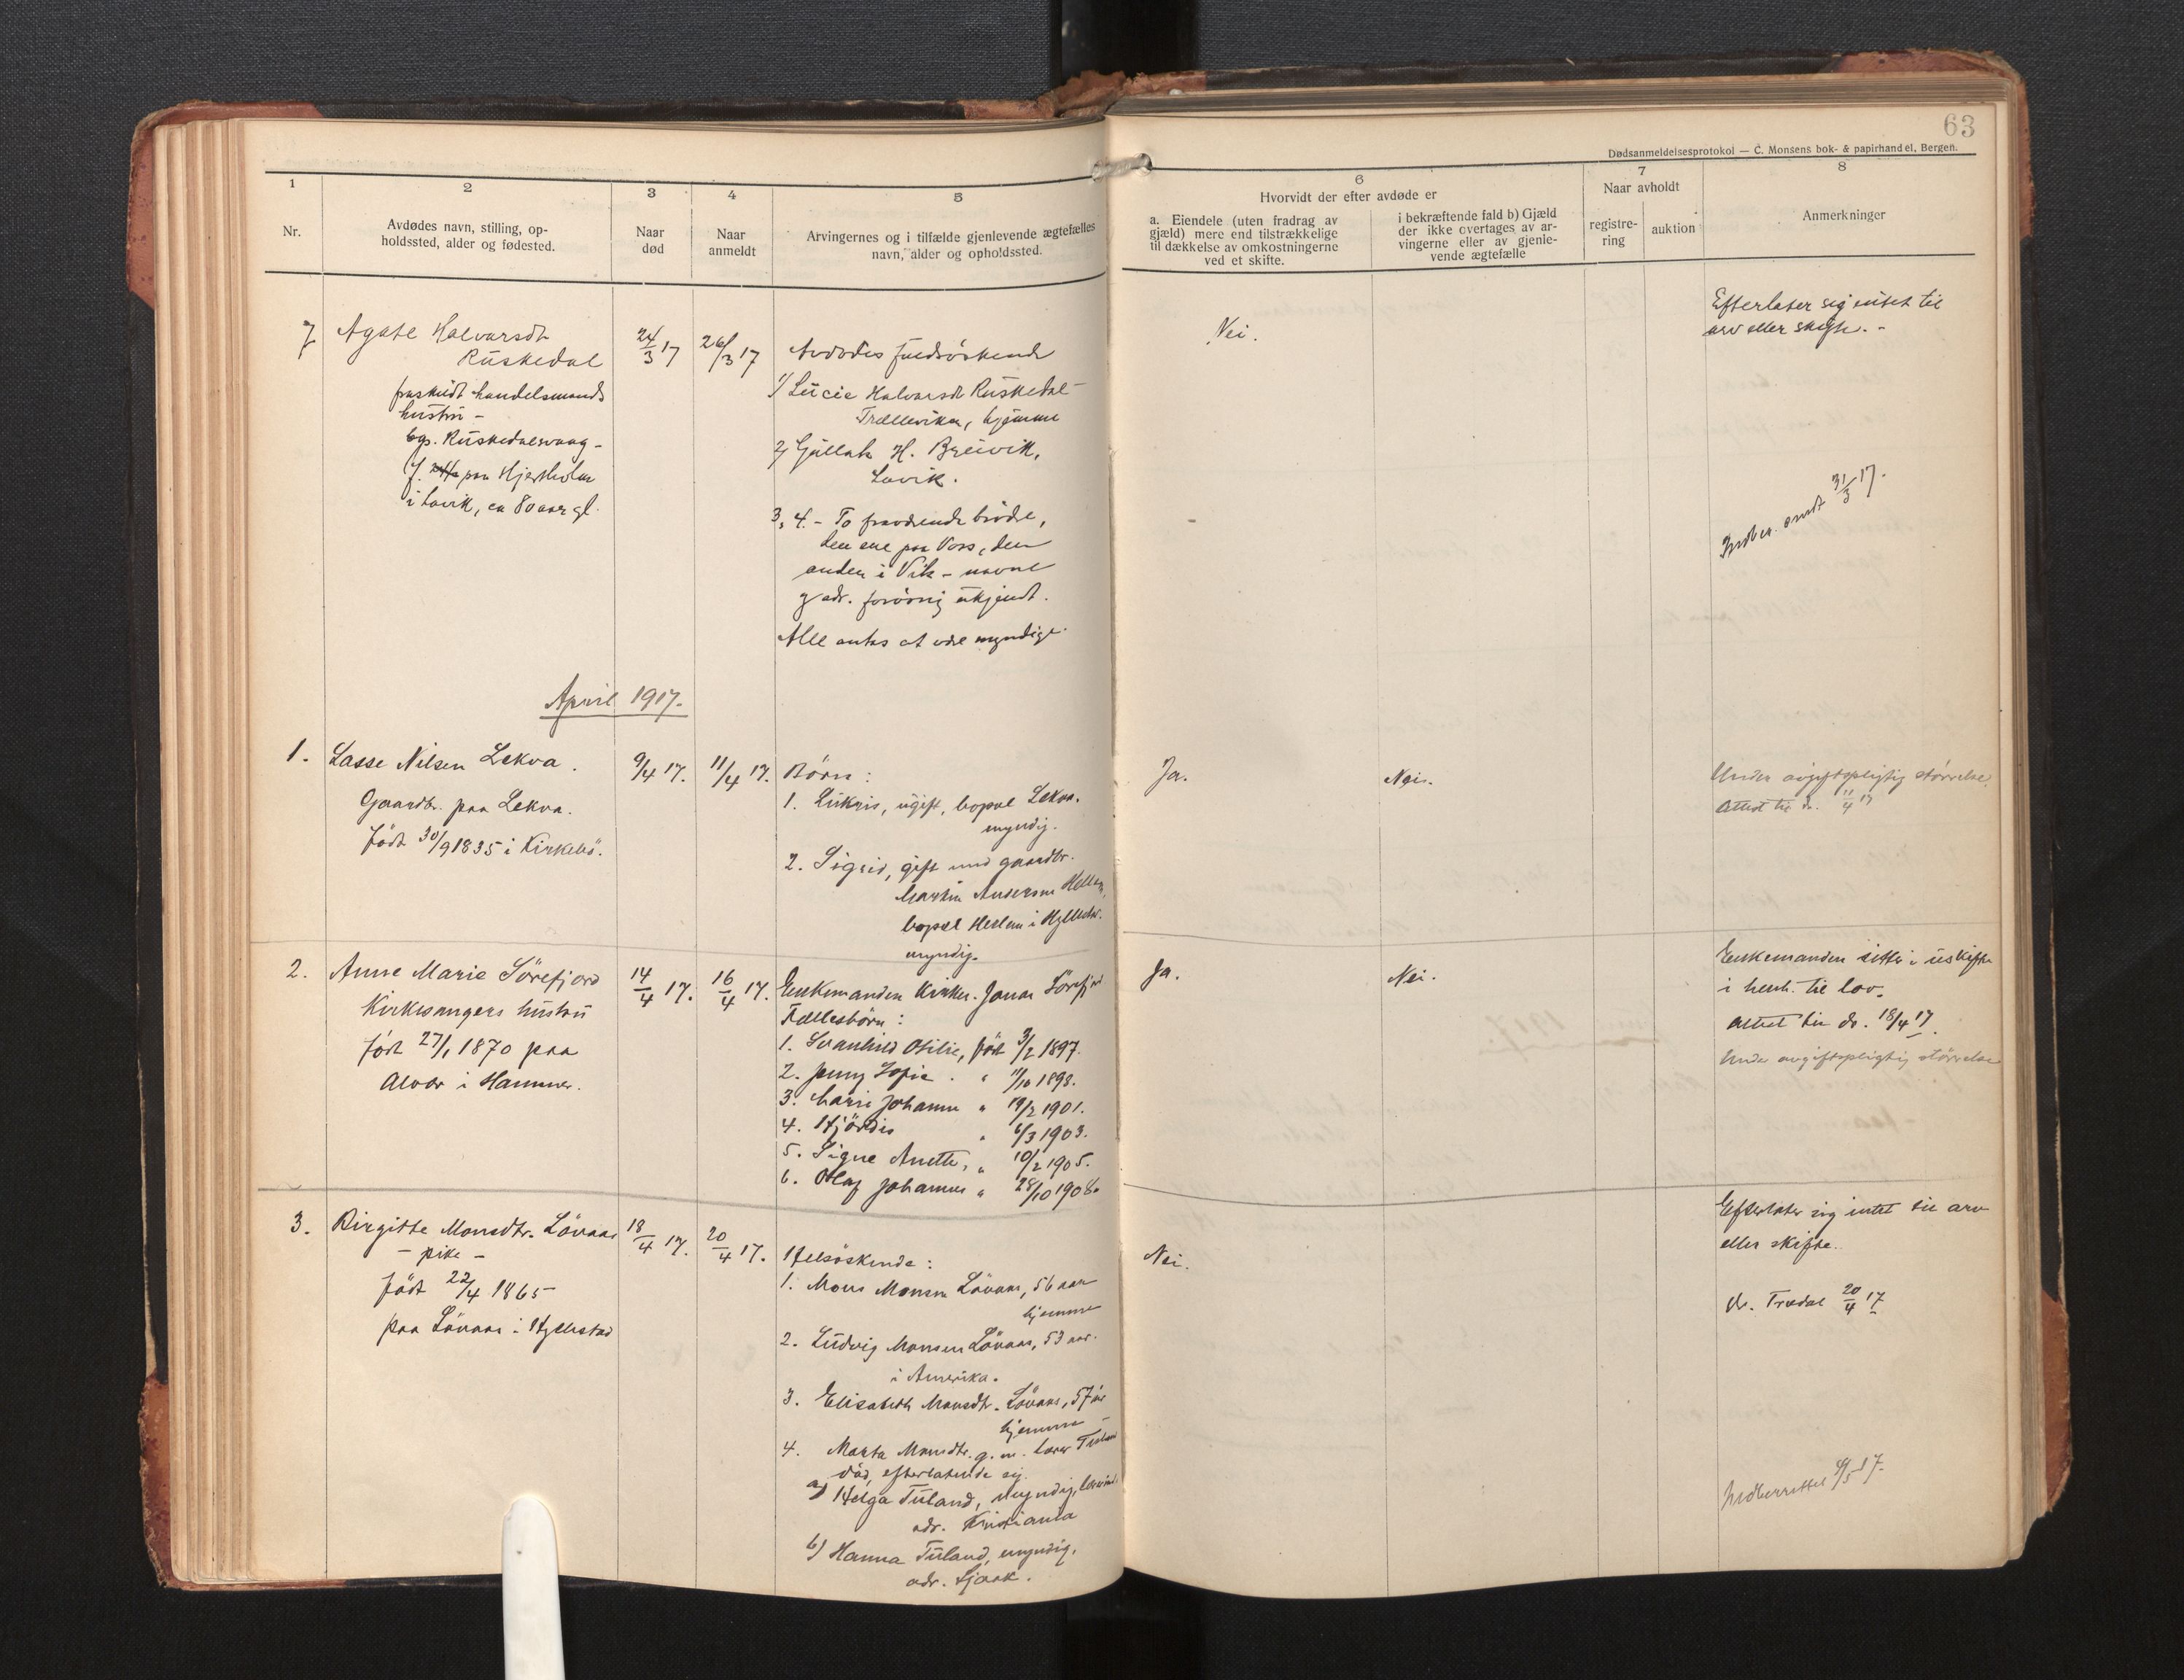 63
Dødsanmeldelsesprotokol — C. Monsens bok- & papirhandel, Bergen.
1
2
3
4
5
6
7
8
Nr.
Avdødes navn, stilling, op-
holdssted, alder og fødested.
Naar
død
Naar
anmeldt
Arvingernes og i tilfælde gjenlevende ægtefælles
navn, alder og opholdssted.
Hvorvidt der efter avdøde er
a. Eiendele (uten fradrag av
gjæld) mere end tilstrækkelige
til dækkelse av omkostningerne
ved et skifte.
i bekræftende fald b) Gjæld
der ikke overtages av ar-
vingerne eller av gjenle-
vende ægtefælle
Naar avholdt
registre-
ring
auktion
Anmerkninger
7
Agate Halvarsdt
Rüskedal
fraskildt handelsmands
hüstrü -
bop. Rüskedalsvaag -
f. paa Hjertholm
i Lavik, ca 80 aar gl.
24/3 17
26/3 17
Avdødes
1) Lücie Halvarsdt Rüskedal
hjemme
2) Güllak H. Breivik,
Lavik.
3, 4. - To brødre,
den ene paa Voss, den
anden i Vik - navne
g adr. forøvrig ükjendt.
Alle antas at være myndige.
Nei.
Efterlater sig intet til
arv eller skifte. -
Indber. sendt 31/3 17.
April 1917.
1.
Lasse Nilsen Lekva.
Gaardbr. paa Lekva.
født 30/9 1835 i Kirkebø.
9/4 17.
11/4 17.
Børn:
1. ügift, bopæl Lekva.
myndig.
2. Sigrid, gift med gaardbr.
Martin Andersen
bopæl i
myndig.
Ja.
Nei.
Under avgiftspligtig størrelse.
Attest til do. 11/4 17
2.
Anne Marie Sörefjord
Kirkesangers hüstrü
født 27/1 1870 paa
Alvær i Hammer.
14/4 17.
16/4 17.
Enkemanden Kirkes. Jonas Sörefjord
Fællesbörn:
1. Svanhild Otilie, født 3/2 1897.
2. Jenny Sofie. " 11/10 1898.
3. Marie Johanne " 19/2 1901.
4. Hjördis " 6/3 1903.
5. Signe Anette, " 10/2 1905.
6. Olaf Johannes " 28/10 1908.
Ja.
Nei.
Enkemanden sitter i üskifte
i henh. til lov.
Attest til do. 18/4 17.
Under avgiftspligtig størrelse
3.
Birgitte Monsdtr. Lövaas
- pike -
født 22/4 1865
paa Lövaas i Hyllestad
18/4 17.
20/4 17.
Helsöskende:
1. Mons Monsen Lövaas, 56 aar
hjemme
2. Lüdvig Monsen Lövaas, 53 aar.
i Amerika.
3. Elisabeth Monsdtr. Lövaas, 57 år
hjemme
4. Marta Monsdtr. g. m. Tüland
död, efterlatende sig.
a) Helga Tüland, myndig,
adr. Kristiania
b) Hanna Tüland, myndig,
adr.
Nei.
Efterlater sig intet til arv
eller skifte.
20/4 17
Indberettet 4/5 17.